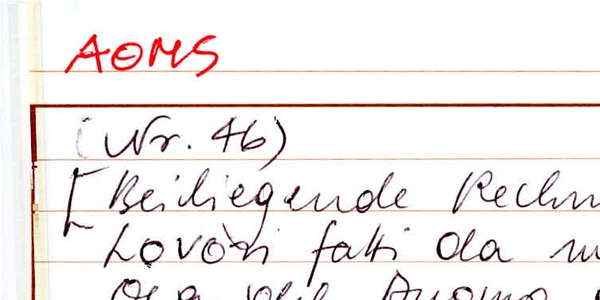 AOMS
(Nr. 46)
[Beiliegende Rechn
Lovòri fatti da m